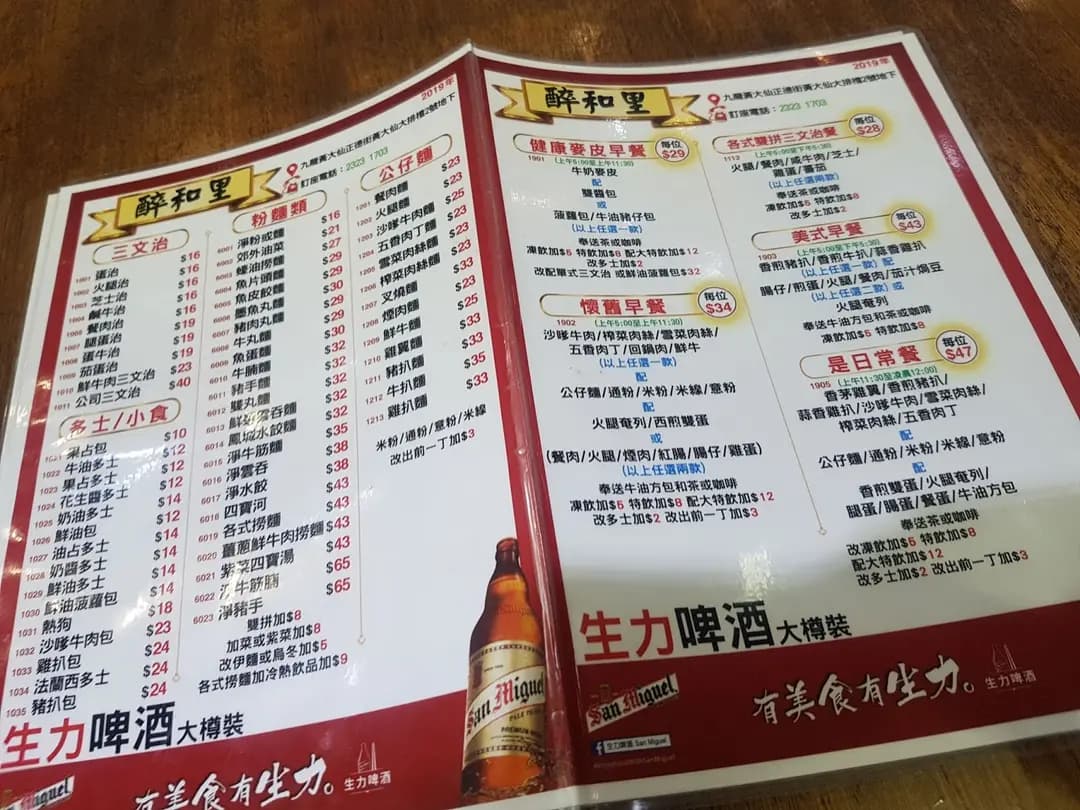 2019年
醉和里
九龍黃大仙正德街黃大仙大排檔2號地下
訂座電話：2323 1703
三文治
1001 蛋治 $16
1002 火腿治 $16
1003 芝士治 $16
1004 鹹牛治 $16
1005 餐肉治 $16
1006 腿蛋治 $19
1008 蛋牛治 $19
1009 茄蛋治 $19
1010 鮮牛肉三文治 $23
1011 公司三文治 $40
多士/小食
果占包 $10
1022 牛油多士 $12
1023 果占多士 $12
1024 花生醬多士 $12
1025 奶油多士 $14
1026 鮮油包 $12
1027 油占多士 $14
1028 奶醬多士 $14
1029 鮮油多士 $14
1030 鮮油菠蘿包 $14
1031 熱狗 $18
1032 沙嗲牛肉包 $23
1033 雞扒包 $24
1034 法蘭西多士 $24
1035 豬扒包 $24
粉麵類
6001 淨粉或麵 $16
6002 郊外油菜 $21
6003 蠔油撈麵 $27
6004 魚片頭麵 $29
6005 魚皮餃麵 $29
6006 墨魚丸麵 $30
6007 豬肉丸麵 $29
6008 牛丸麵 $29
6009 魚蛋麵 $30
6010 牛腩麵 $32
6011 豬手麵 $32
6012 雙丸麵 $32
6013 鮮蝦雲吞麵 $32
6014 鳳城水餃麵 $32
6015 淨牛筋麵 $35
6016 淨雲吞 $38
6017 淨水餃 $38
四寶河 $43
6019 各式撈麵 $43
6020 薑蔥鮮牛肉撈麵 $43
6021 紫菜四寶湯 $43
6022 淨牛筋腩 $65
6023 淨豬手 $65
雙拼加$8
加菜或紫菜加$8
改伊麵或烏冬加$5
各式撈麵加冷熱飲品加$9
公仔麵
1201 餐肉麵 $23
1202 火腿麵 $23
1203 沙嗲牛肉麵 $25
1204 五香肉丁麵 $23
1205 雪菜肉絲麵 $23
1206 榨菜肉絲麵 $23
1207 叉燒麵 $33
1208 煙肉麵 $23
1209 鮮牛麵 $25
1210 雞翼麵 $33
1211 豬扒麵 $33
1212 牛扒麵 $35
1213 雞扒麵 $33
米粉/通粉/意粉/米線
改出前一丁加$3
生力啤酒 大樽裝
有美食有生力。
生力啤酒
San Miguel
PALE PILSEN
2019年
醉和里
九龍黃大仙正德街黃大仙大排檔2號地下
訂座電話：2323 1703
健康麥皮早餐 每位$29
1901 (上午5:00至上午11:30)
牛奶麥皮
配
雙醬包
或
菠蘿包/牛油豬仔包
(以上任選一款)
奉送茶或咖啡
凍飲加$5 特飲加$8 配大特飲加$12
改多士加$2
改配單式三文治 或鮮油菠蘿包$32
懷舊早餐 每位$34
1902 (上午5:00至上午11:30)
沙嗲牛肉/榨菜肉絲/雪菜肉絲/
五香肉丁/回鍋肉/鮮牛
(以上任選一款)
配
公仔麵/通粉/米粉/米線/意粉
配
火腿奄列/西煎雙蛋
或
(餐肉/火腿/煙肉/紅腸/腸仔/雞蛋)
(以上任選兩款)
奉送牛油方包和茶或咖啡
凍飲加$5 特飲加$8 配大特飲加$12
改多士加$2 改出前一丁加$3
各式雙拼三文治餐 每位$28
1112 (上午5:00至下午5:30)
火腿/餐肉/咸牛肉/芝士/
雞蛋/蕃茄
(以上任選兩款)
奉送茶或咖啡
凍飲加$5 特飲加$8
改多士加$2
美式早餐 每位$43
1903 (上午5:00至下午5:30)
香煎豬扒/香煎牛扒/蒜香雞扒
(以上任選一款) 配
腸仔/煎蛋/火腿/餐肉/茄汁焗豆
(以上任選二款) 或
火腿奄列
奉送牛油方包和茶或咖啡
凍飲加$5 特飲加$8
是日常餐 每位$47
1905 (上午11:30至凌晨12:00)
香茅雞翼/香煎豬扒/
蒜香雞扒/沙嗲牛肉/雪菜肉絲/
榨菜肉絲/五香肉丁
配
公仔麵/通粉/米粉/米線/意粉
配
香煎雙蛋/火腿奄列/
腿蛋/腸蛋/餐蛋/牛油方包
奉送茶或咖啡
改凍飲加$5 特飲加$8
配大特飲加$12
改多士加$2 改出前一丁加$3
生力啤酒 大樽裝
San Miguel
有美食有生力。
生力啤酒
生力啤酒 San Miguel